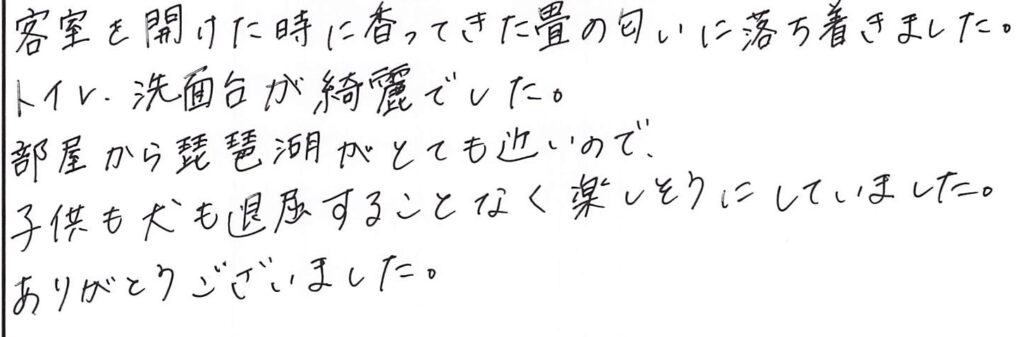 客室を開けた時に香ってきた畳の匂いに落ち着きました。
トイレ、洗面台が綺麗でした。
部屋から琵琶湖がとても近いので、
子供も犬も退屈することなく楽しそうにしていました。
ありがとうございました。